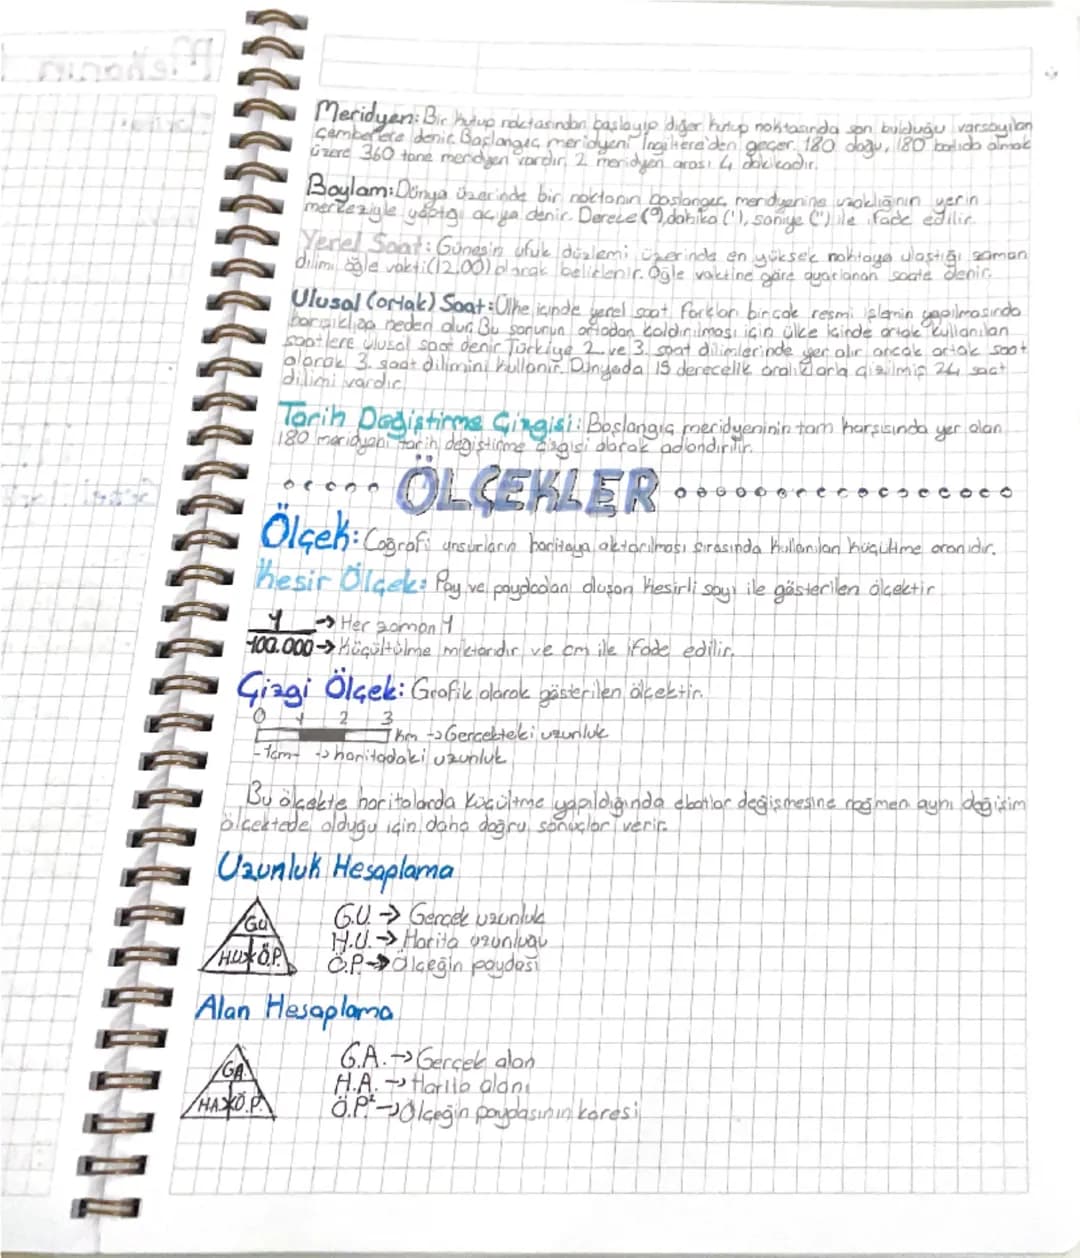 Meridyen: Bir kutup noktasından başlayıp diğer kutup noktasında son bulduğu varsayılan
çemberlere denir. Başlangıç meridyeni İngiltere'den geçer. 180 doğu, 180 batıda olmak
üzere 360 tane meridyen vardır. 2 meridyen arası 4 dakikadır.
Boylam: Dünya üzerinde bir noktanın başlangıç meridyenine uzaklığının yerin
merkeziyle yaptığı açıya denir. Derece (°), dakika ('), saniye (") ile ifade edilir.
Yerel Saat: Güneşin ufuk düzlemi üzerinde en yüksek noktaya ulaştığı zaman
dilimi öğle vakti (12.00) olarak belirlenir. Öğle vaktine göre ayarlanan saate denir.
Ulusal (ortak) Saat: Ülke içinde yerel saat farkları birçok resmi işlemin yapılmasında
karışıklığa neden olur. Bu sorunun ortadan kaldırılması için ülke içinde ortak kullanılan
saatlere ulusal saat denir. Türkiye 2. ve 3. saat dilimlerinde yer alır ancak ortak saat
olarak 3. saat dilimini kullanır. Dünyada 15 derecelik aralıklarla çizilmiş 24 saat
dilimi vardır.
Tarih Değiştirme Çizgisi: Başlangıç meridyeninin tam karşısında yer alan
180 meridyeni tarih değiştirme çizgisi olarak adlandırılır.
ÖLÇEKLER
Ölçek: Coğrafi unsurların haritaya aktarılması sırasında kullanılan küçültme oranıdır.
Kesir Ölçek: Pay ve paydadan oluşan kesirli sayı ile gösterilen ölçektir
1 → Her zaman 1
100.000 → Küçültülme miktarıdır ve cm ile ifade edilir.
Çizgi Ölçek: Grafik olarak gösterilen ölçektir.
0 1 2 3
km → Gerçekteki uzunluk
-1cm- → haritadaki uzunluk
Bu ölçekte haritalarda küçültme yapıldığında ebatlar değişmesine rağmen aynı değişim
ölçektede olduğu için daha doğru sonuçlar verir.
Uzunluk Hesaplama
GU
HU x Ö.P.
G.U. → Gerçek uzunluk
H.U. → Harita uzunluğu
Ö.P → Ölçeğin paydası
Alan Hesaplama
GA.
HA x Ö.P.
G.A. → Gerçek alan
H.A. → Harita alanı
Ö.P² → Ölçeğin paydasının karesi